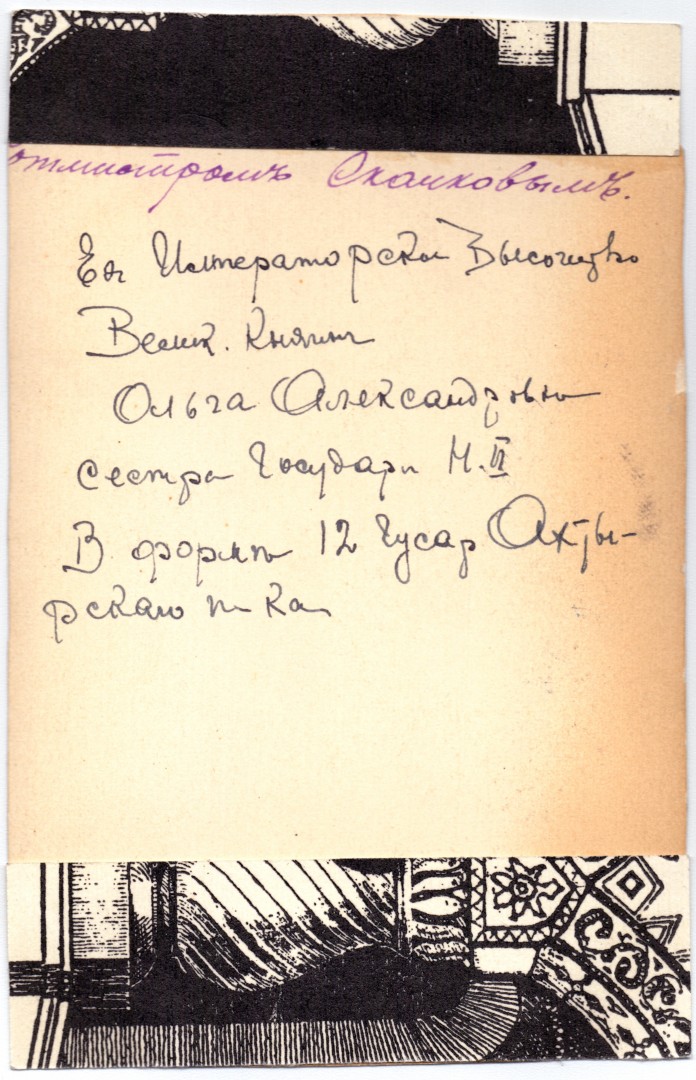 отмистромъ Скачковымъ.
Ея Императорск. Высочество
Велик. Княгин
Ольга Александровн
сестра Государя Н. II
В формѣ 12 Гусар Ахты-
рскаго п-ка